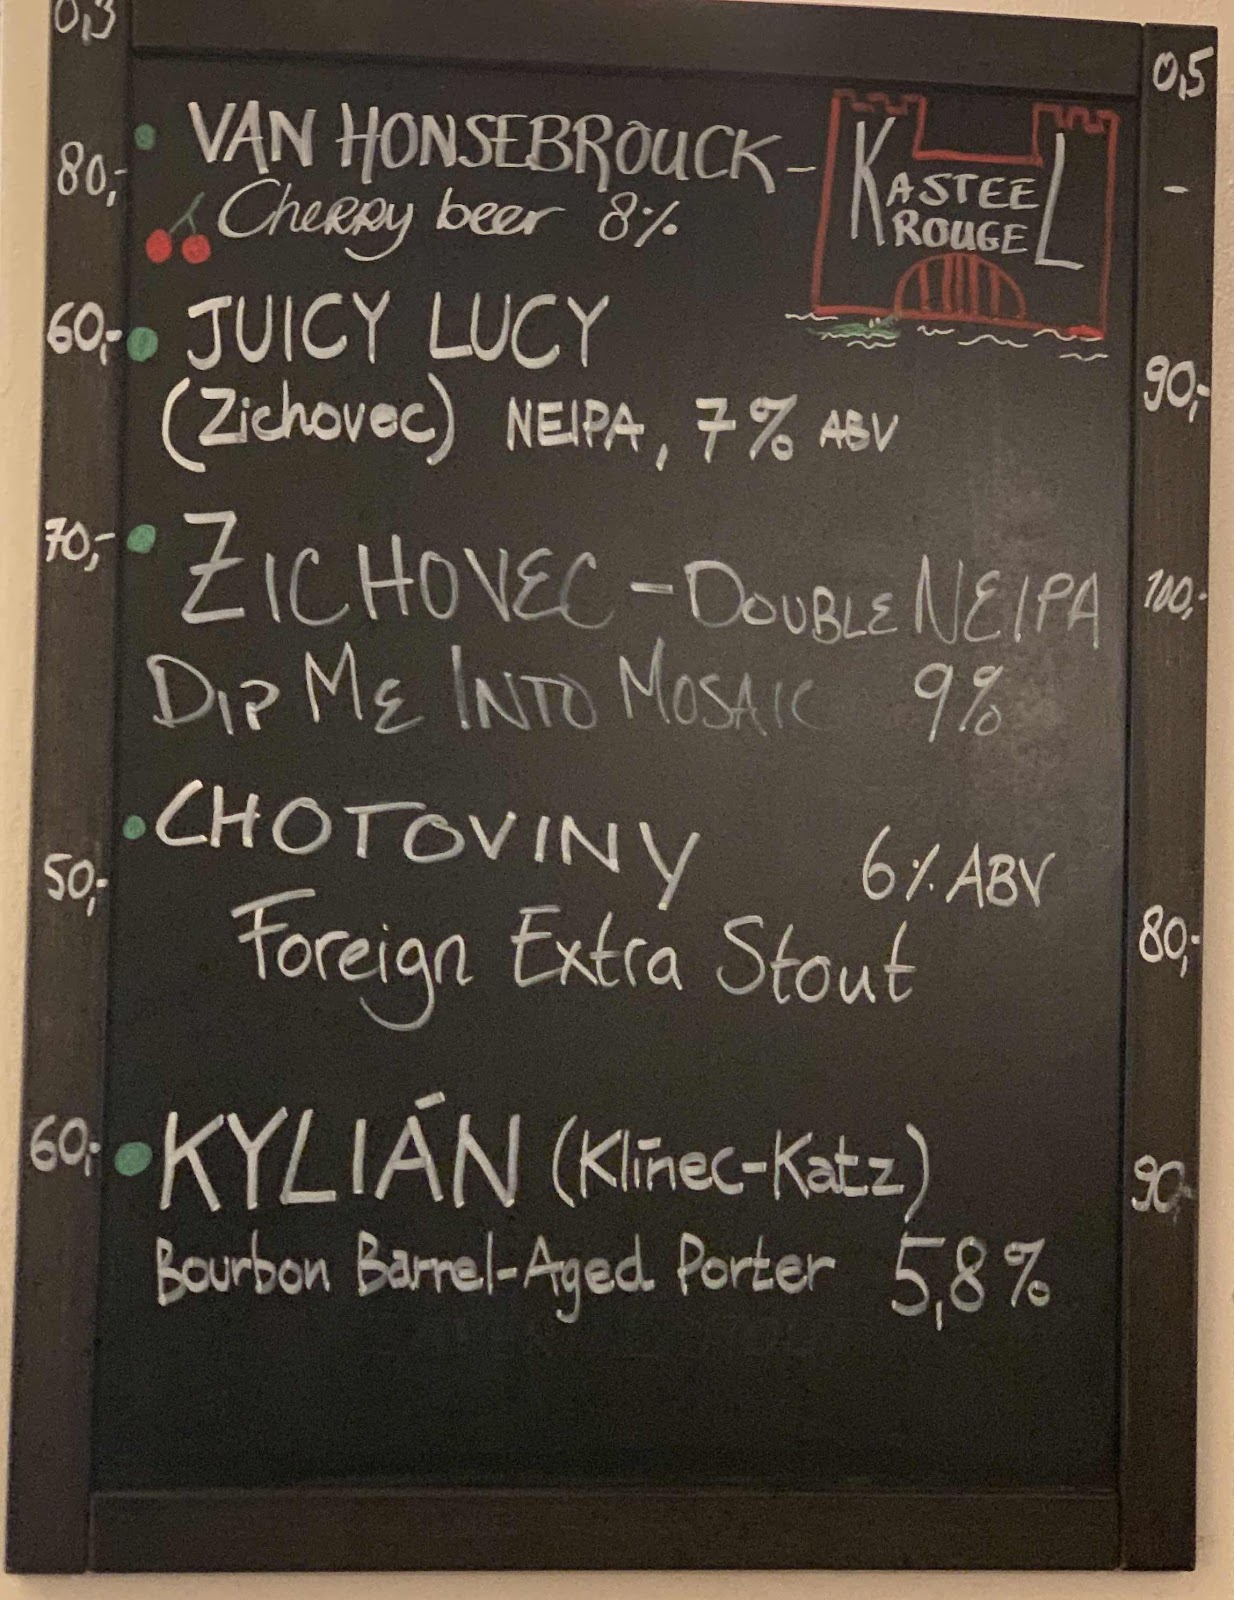 0,3
0,5
80,-
VAN HONSEBROUCK-
KASTEEL
ROUGE
-
Cherry beer 8%
60,-
JUICY LUCY
90,-
(Zichovec) NEIPA, 7% ABV
70,-
ZICHOVEC - DOUBLE NEIPA
100,-
DIP ME INTO MOSAIC 9%
50,-
CHOTOVINY 6% ABV
80,-
Foreign Extra Stout
60,-
KYLIÁN (Klínec-Katz)
90,-
Bourbon Barrel-Aged Porter 5,8%